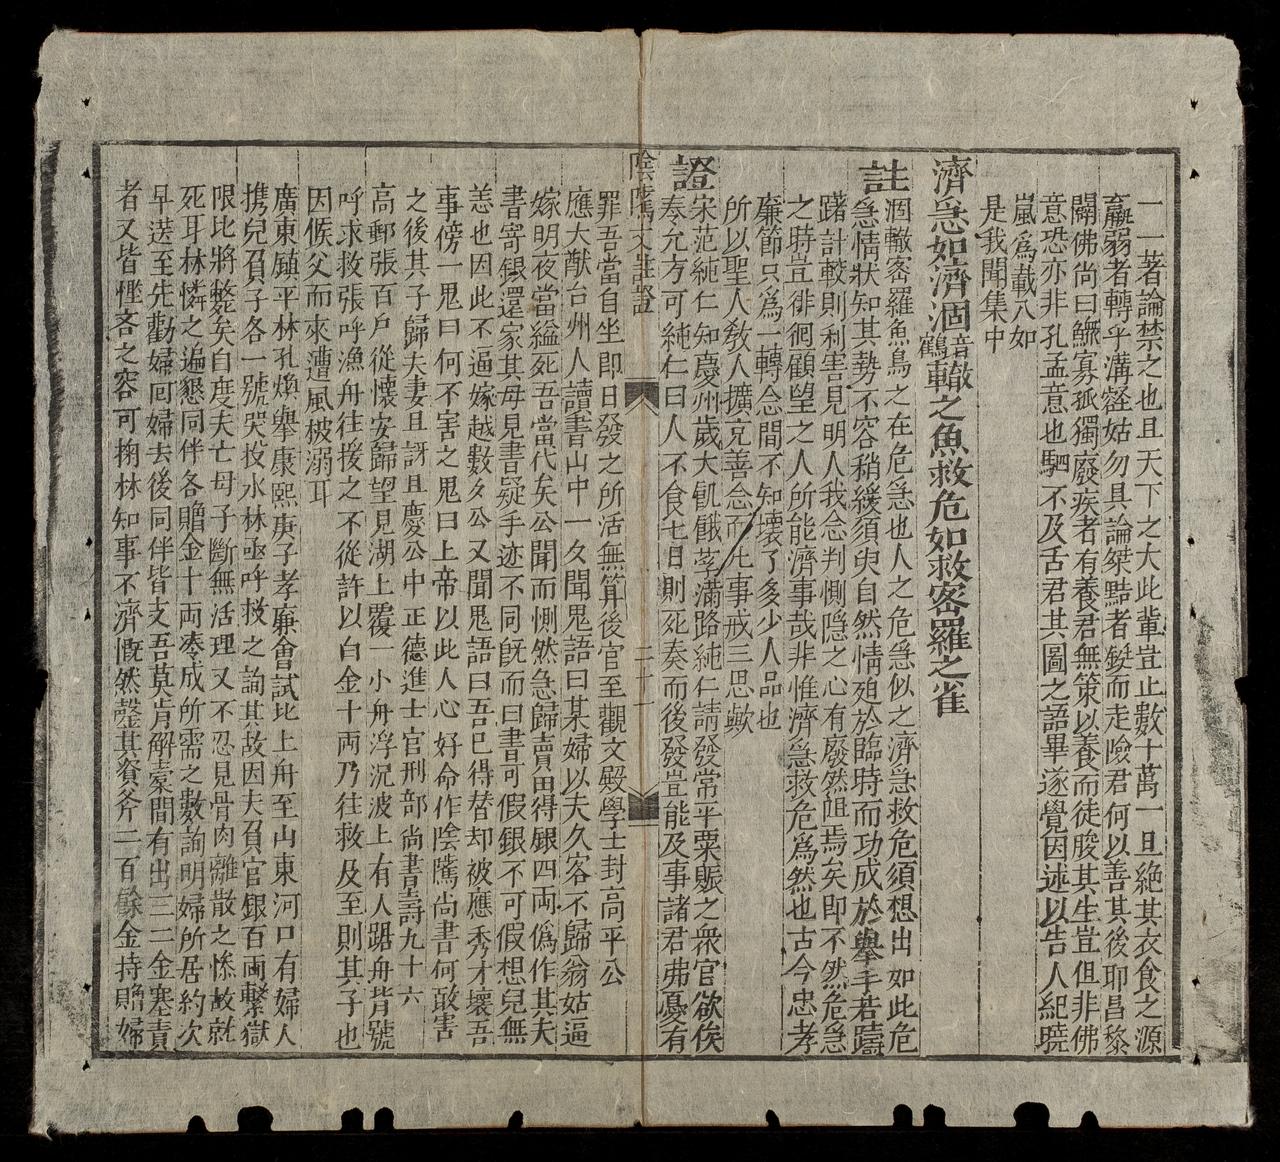 一一著論禁之也且天下之大此輩豈止數十萬一旦絶其衣食之源
羸弱者轉乎溝壑姑勿具論桀黠者鋌而走險君何以善其後耶昌黎
闢佛尚曰鰥寡孤獨廢疾者有養君無策以養而徒朘其生豈但非佛
意恐亦非孔孟意也駟不及舌君其圖之語畢遂覺因述以告人紀曉
嵐爲載入如
是我聞集中
濟急如濟涸音鶴轍之魚救危如救密羅之雀
註
涸轍密羅魚鳥之在危急也人之危急似之濟急救危須想出如此危
急情狀知其勢不容稍緩須臾自然情廹於臨時而功成於舉手若躊
躇計較則利害見明人我念判惻隱之心有廢然阻焉矣即不然危急
之時豈徘徊顧望之人所能濟事哉非惟濟急救危爲然也古今忠孝
廉節只爲一轉念間不知壞了多少人品也
所以聖人敎人擴充善念而凢事戒三思歟
證
宋范純仁知慶州歲大饑餓莩滿路純仁請發常平粟賑之衆官欲俟
奏允方可純仁曰人不食七日則死奏而後發豈能及事諸君弗憂有
陰隲文註證
二十一
罪吾當自坐即日發之所活無算後官至觀文殿學士封高平公
應大猷台州人讀書山中一夕聞鬼語曰某婦以夫久客不歸翁姑逼
嫁明夜當縊死吾當代矣公聞而惻然急歸賣田得銀四兩僞作其夫
書寄銀還家其母見書疑手迹不同旣而曰書可假銀不可假想兒無
恙也因此不逼嫁越數夕公又聞鬼語曰吾已得替却被應秀才壞吾
事傍一鬼曰何不害之鬼曰上帝以此人心好命作陰隲尚書何敢害
之後其子歸夫妻且訝且慶公中正德進士官刑部尚書壽九十六
高郵張百戶從懷安歸望見湖上覆一小舟浮況波上有人踞舟背號
呼求救張呼漁舟往援之不從許以白金十兩乃往救及至則其子也
因候父而來遭風被溺耳
廣東鎮平林孔煥舉康熙庚子孝廉會試北上舟至山東河口有婦人
携兒負子各一號哭投水林亟呼救之詢其故因夫負官銀百兩繫獄
限比將斃矣自度夫亡母子斷無活理又不忍見骨肉離散之慘故就
死耳林憐之遍懇同伴各贈金十両奏成所需之數詢明婦所居約次
早送至先勸婦回婦去後同伴皆支吾莫肯解囊間有出三二金塞責
者又皆慳吝之容可掬林知事不濟慨然罄其資斧二百餘金持贈婦